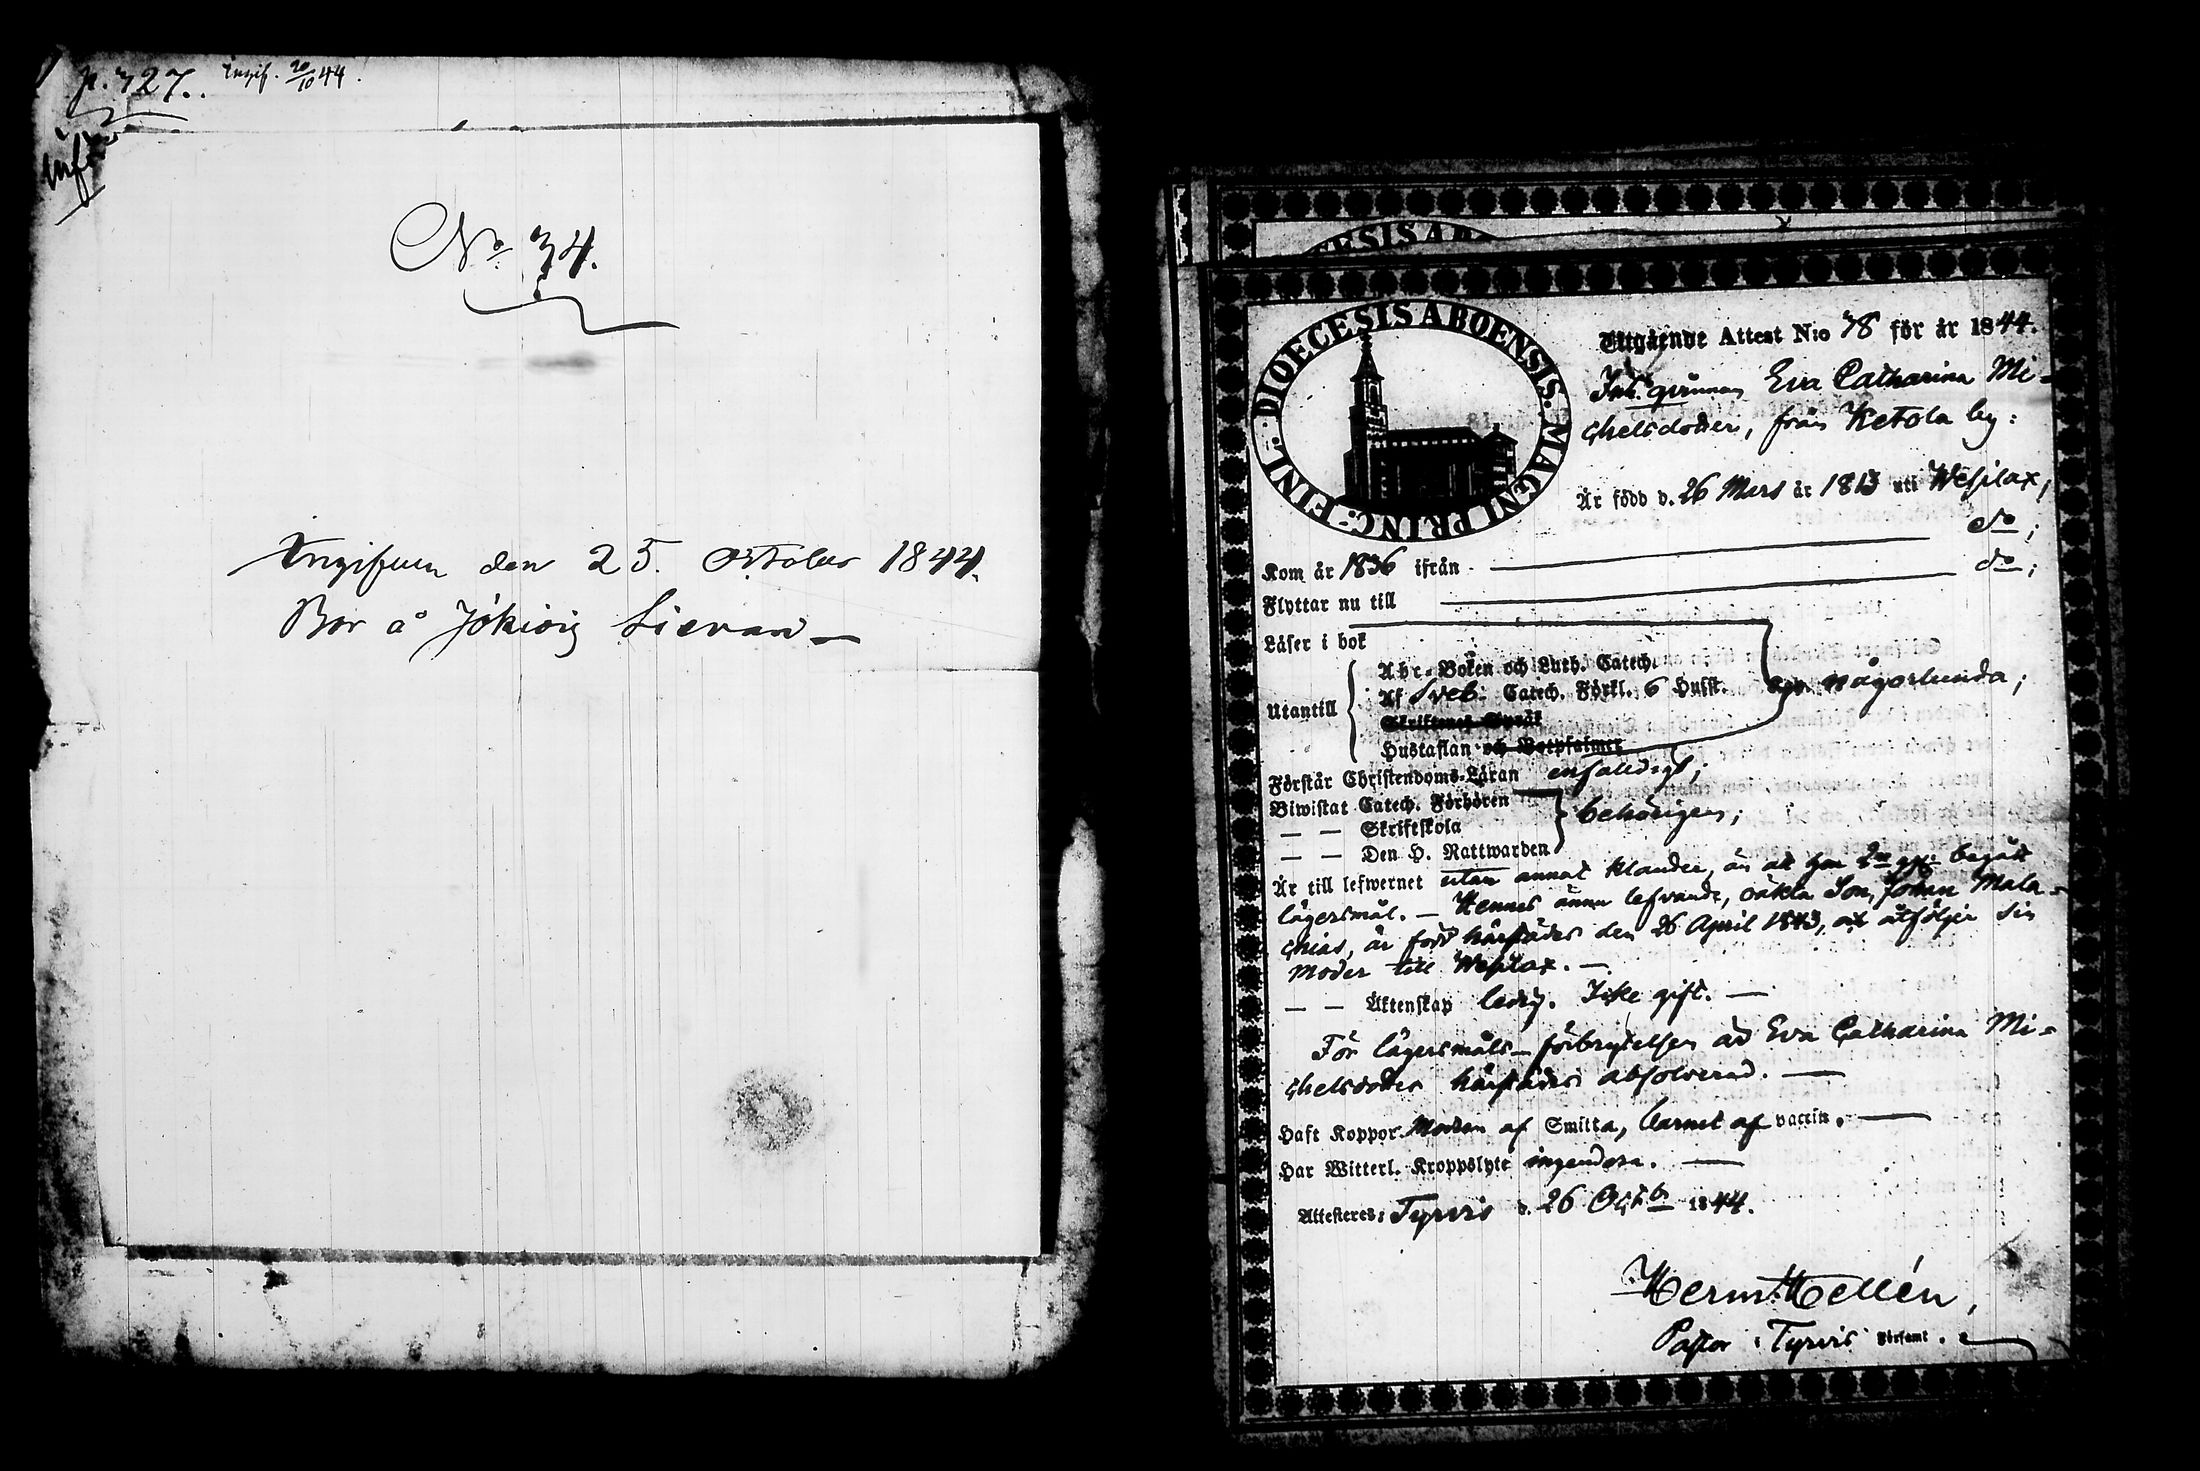 p. 727. Ingif. 20/10 44.
Infö
No 34.
Ingifven den 25. October 1844.
Bor å Jokioig Sievan
DIOECESIS ABO
DIOECESIS ABOENSIS. MAGNI PRINC: FINL.
Utgående Attest N:o 78 för år 1844.
Inh. qvinnan Eva Catharina Mi-
chelsdotter, från Ketola by:
Är född d. 26 Mars år 1813 uti Wesilax;
Kom år 1836 ifrån do;
Flyttar nu till do;
Läser i bok
Utantill
Abc-Boken och Luth. Catech.
Af Sveb. Catech. Förkl. 6 Hufst. någorlunda;
Skriftenes Språk
Hustaflan och Botpsalmer
Förstår Christendoms-Läran enfaldigt;
Biwistat Catech. Förhören
— — Skriftskola behörigen;
— — Den H. Nattwarden
Är till lefwernet utan annat klander, än att hon 2ne ggr begått
lägersmål. — Hennes ännu lefvande, oäkta Son, Johan Mala-
chias, är född härstädes den 26 April 1843, och åtföljer sin
Moder till Wesilax. —
— — Äktenskap ledig. Icke gift. —
För lägersmåls-förbrytelsen är Eva Catharina Mi-
chelsdotter härstädes absolverad. —
Haft Koppor Modren af Smitta, barnet af vaccin. —
Har Witterl. Kroppslyte ingendera. —
Attesteras: Tyrvis d. 26 Octbr 1844.
Herm. Hellén,
Pastor i Tyrvis Församl.